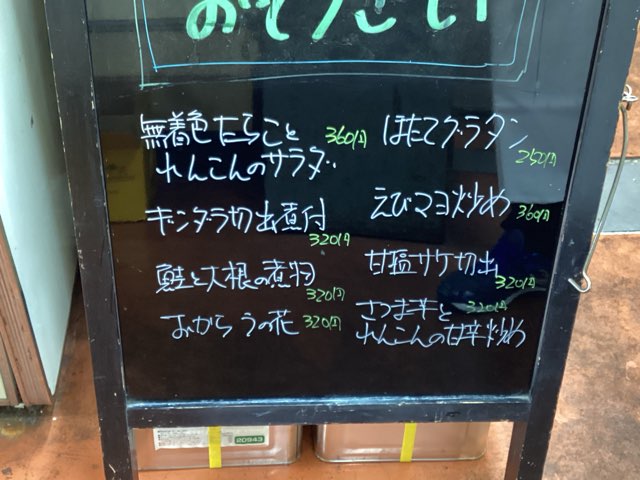 おそうざい
無着色たらこと 360円
れんこんのサラダ
ギンダラ切出煮付
320円
鮭と大根の煮物
320円
おから うの花 320円
ほたてグラタン
250円
えびマヨ炒め 360円
甘塩サケ切出
320円
さつま芋と 320円
れんこんの甘辛炒め
20943